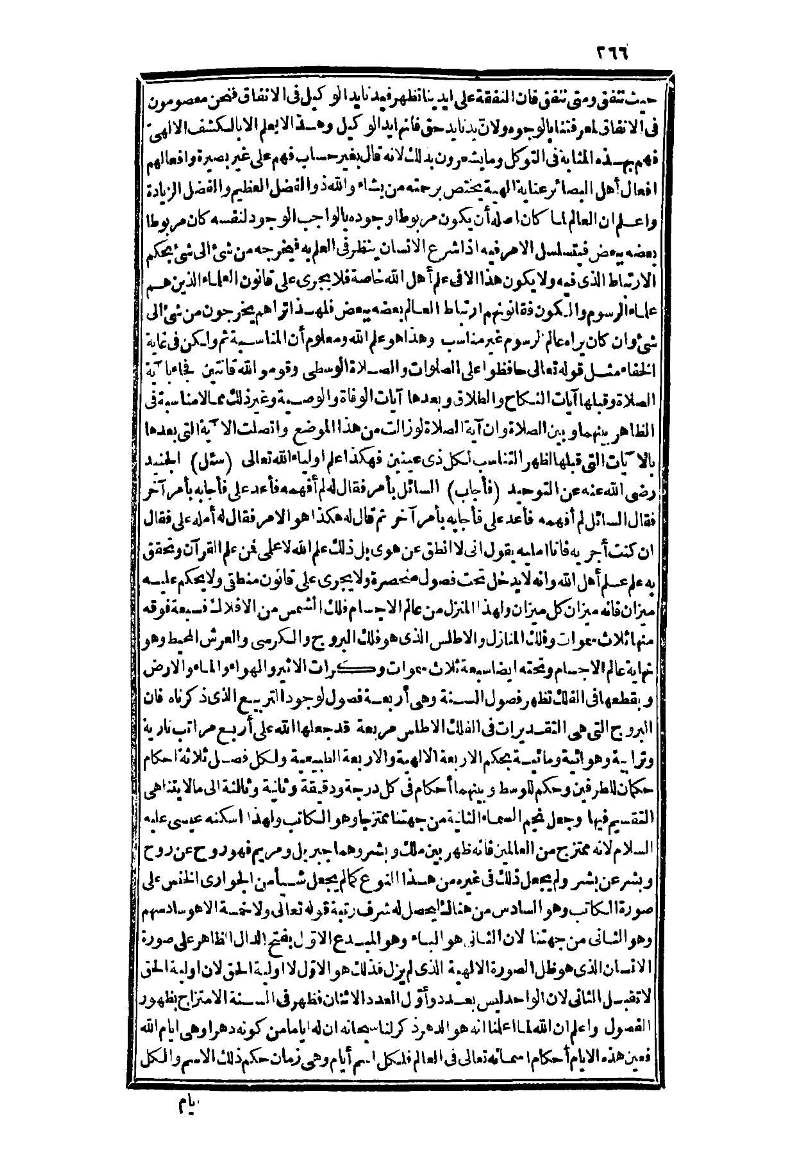 ٢٦٦
حيث تنفق ومتى تنفق فان النفقة على ايدينا تظهر فيدنا يد الوكيل فى الانفاق فنحن معصومون
فى الانفاق لمعرفتنا بالوجوه ولان يدنا يد حق فانهم ايد الوكيل وهذا لا يعلم الا بالكشف الالهى
فهم بهذه المثابة فى التوكل وما يشعرون بذلك لانه قال بغير حساب فهم على غير بصيرة وافعالهم
افعال أهل البصائر عناية الهية يختص برحمته من يشاء والله ذو الفضل العظيم والفضل الزيادة
واعلم ان العالم لما كان اصله أن يكون مربوطا وجوده بالواجب الوجود لنفسه كان مربوطا
بعضه ببعض فيتسلسل الامر فيه اذا شرع الانسان ينظر فى العلم به فيخرجه من شئ الى شئ بحكم
الارتباط الذى فيه ولا يكون هذا الا فى علم أهل الله خاصة فلا يجرى على قانون العلماء الذين هم
علماء الرسوم والكون فقانونهم ارتباط العالم بعضه ببعض فلهذا تراهم يخرجون من شئ الى
شئ وان كان يراه عالم الرسوم غير مناسب وهذا هو علم الله ومعلوم أن المناسبة ثم ولكن فى غاية
الخفاء مثل قوله تعالى حافظوا على الصلوات والصلاة الوسطى وقوموا لله قانتين فجاء بآية
الصلاة وقبلها آيات النكاح والطلاق وبعدها آيات الوفاة والوصية وغير ذلك مما لا مناسبة فى
الظاهر بينهما وبين الصلاة وان آية الصلاة لو زالت من هذا الموضع واتصلت الآية التى بعدها
بالآيات التى قبلها لظهر التناسب لكل ذى عينين فهكذا علم اولياء الله تعالى (سئل) الجنيد
رضى الله عنه عن التوحيد (فأجاب) السائل بأمر فقال له لم أفهمه فأعد على فأجابه بأمر آخر
فقال السائل لم أفهمه فأعد على فأجابه بأمر آخر ثم قال له هكذا هو الامر فقال له أمله على فقال
ان كنت أجريه فانا امليه يقول انى لا انطق عن هوى بل ذلك علم الله لا على فمن علم القرآن وتحقق
به علم علم أهل الله وانه لا يدخل تحت فصول منحصرة ولا يجرى على قانون منطقى ولا يحكم عليه
ميزان فانه ميزان كل ميزان ولهذا المنزل من عالم الاجسام فلك الشمس من الافلاك فسبعة فوقه
منها ثلاث سموات وفلك المنازل والاطلس الذى هو فلك البروج والكرسى والعرش المحيط وهو
نهاية عالم الاجسام وتحته ايضا سبعة ثلاث سموات وكرات الاثير والهواء والماء والارض
وبقطعها فى الفلك تظهر فصول السنة وهى أربعة فصول لوجود التربيع الذى ذكرناه فان
البروج التى هى التقديرات فى الفلك الاطلس مربعة قد جعلها الله على أربع مراتب نارية
وترابية وهوائية ومائية بحكم الاربعة الالهية والاربعة الطبيعية ولكل فصل ثلاثة احكام
حكمان للطرفين وحكم للوسط وبينهما أحكام فى كل درجة ودقيقة وثانية وثالثة الى ما لا يتناهى
التقسيم فيها وجعل نجم السماء الثانية من جهتنا ممتزجا وهو الكاتب ولهذا اسكنه عيسى عليه
السلام لانه ممتزج من العالمين فانه ظهر بين ملك وبشر وهما جبريل ومريم فهو روح عن روح
وبشر عن بشر ولم يجعل ذلك فى غيره من هذا النوع كما لم يجعل شيأ من الجوارى الخنس على
صورة الكاتب وهو السادس من هناك ليحصل له شرف رتبة قوله تعالى ولا خمسة الا هو سادسهم
وهو الثانى من جهتنا لان الثانى هو الباء وهو المبدع الاول بفتح الدال الظاهر على صورة
الانسان الذى هو ظل الصورة الالهية الذى لم يزل فذلك هو الاول لا اولية الحق لان اولية الحق
لا تقبل الثانى لان الواحد ليس بعدد وأول العدد الاثنان فظهر فى السنة الامتزاج بظهور
الفصول واعلم ان الله لما اعلمنا انه هو الدهر ذكر لنا سبحانه ان له اياما من كونه دهرا وهى ايام الله
فعين هذه الايام أحكام اسمائه تعالى فى العالم فلكل اسم أيام وهى زمان حكم ذلك الاسم والكل
يام